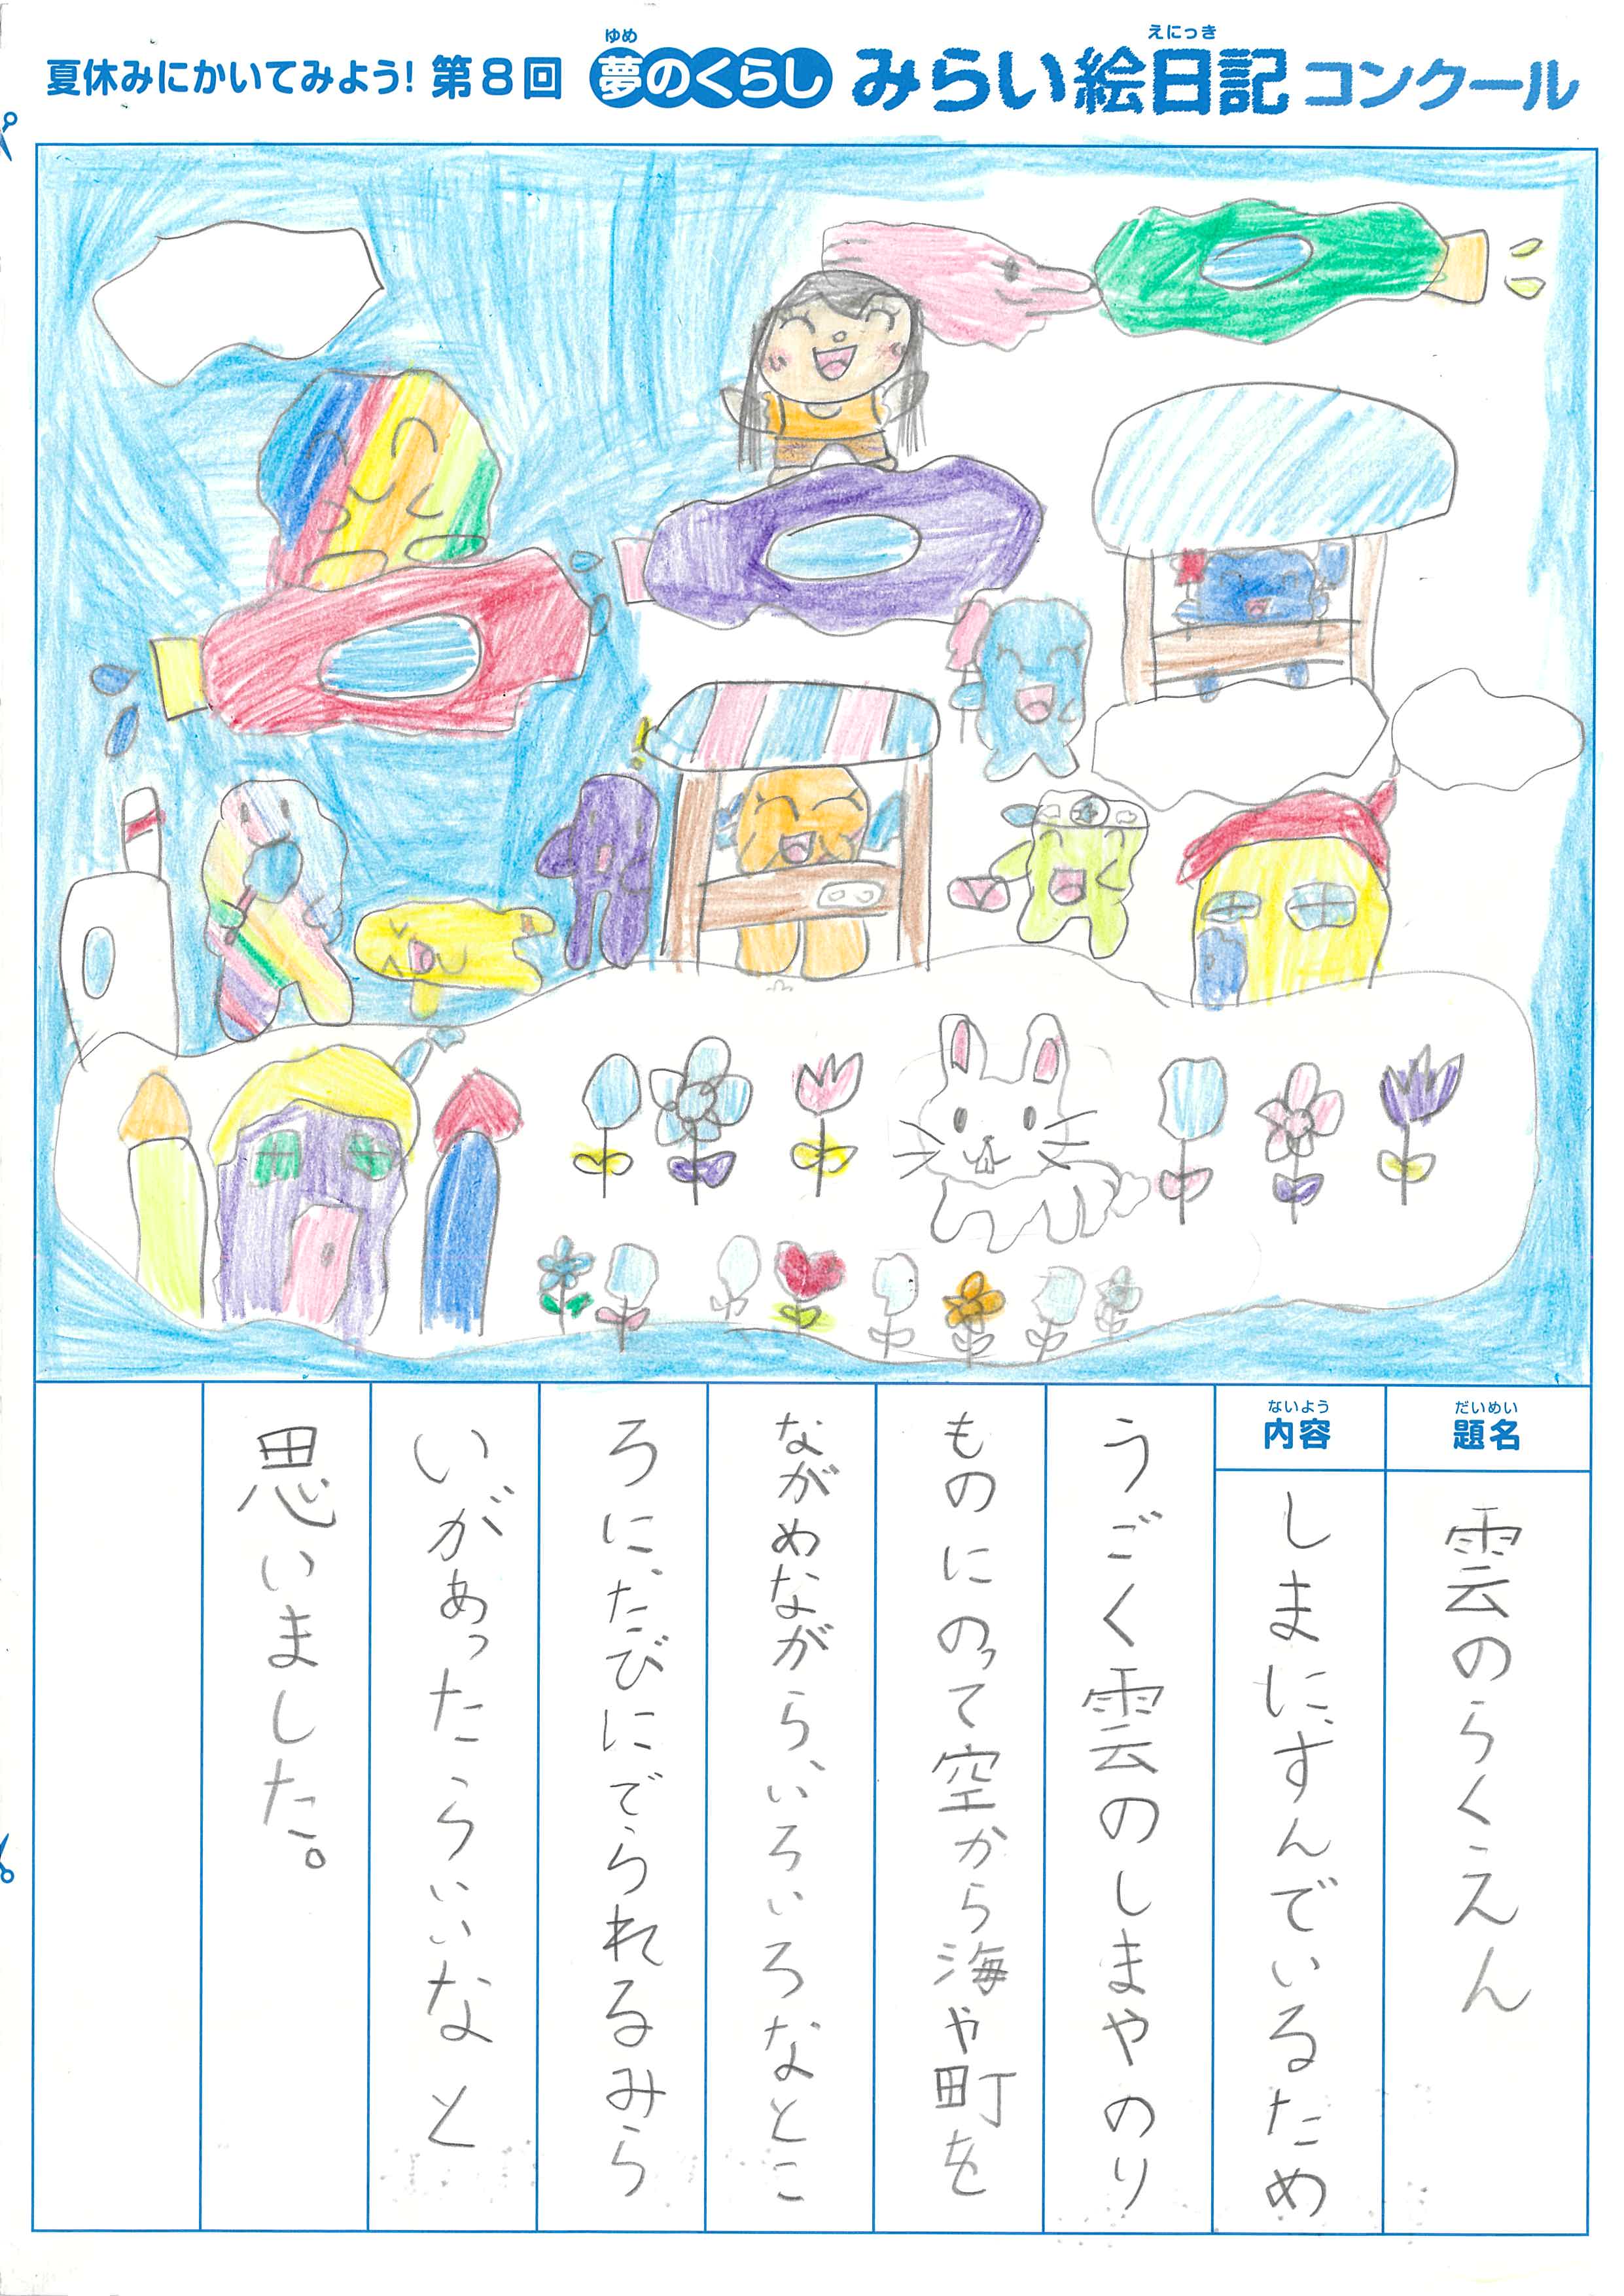 夏休みにかいてみよう! 第8回 夢のくらし みらい絵日記コンクール
ゆめ
えにっき
だいめい
題名
雲のらくえん
ないよう
内容
しまに、すんでいるため
うごく雲のしまやのり
ものにのって空から海や町を
ながめながら、いろいろなとこ
ろに、たびにでられるみら
いがあったらいいなと
思いました。